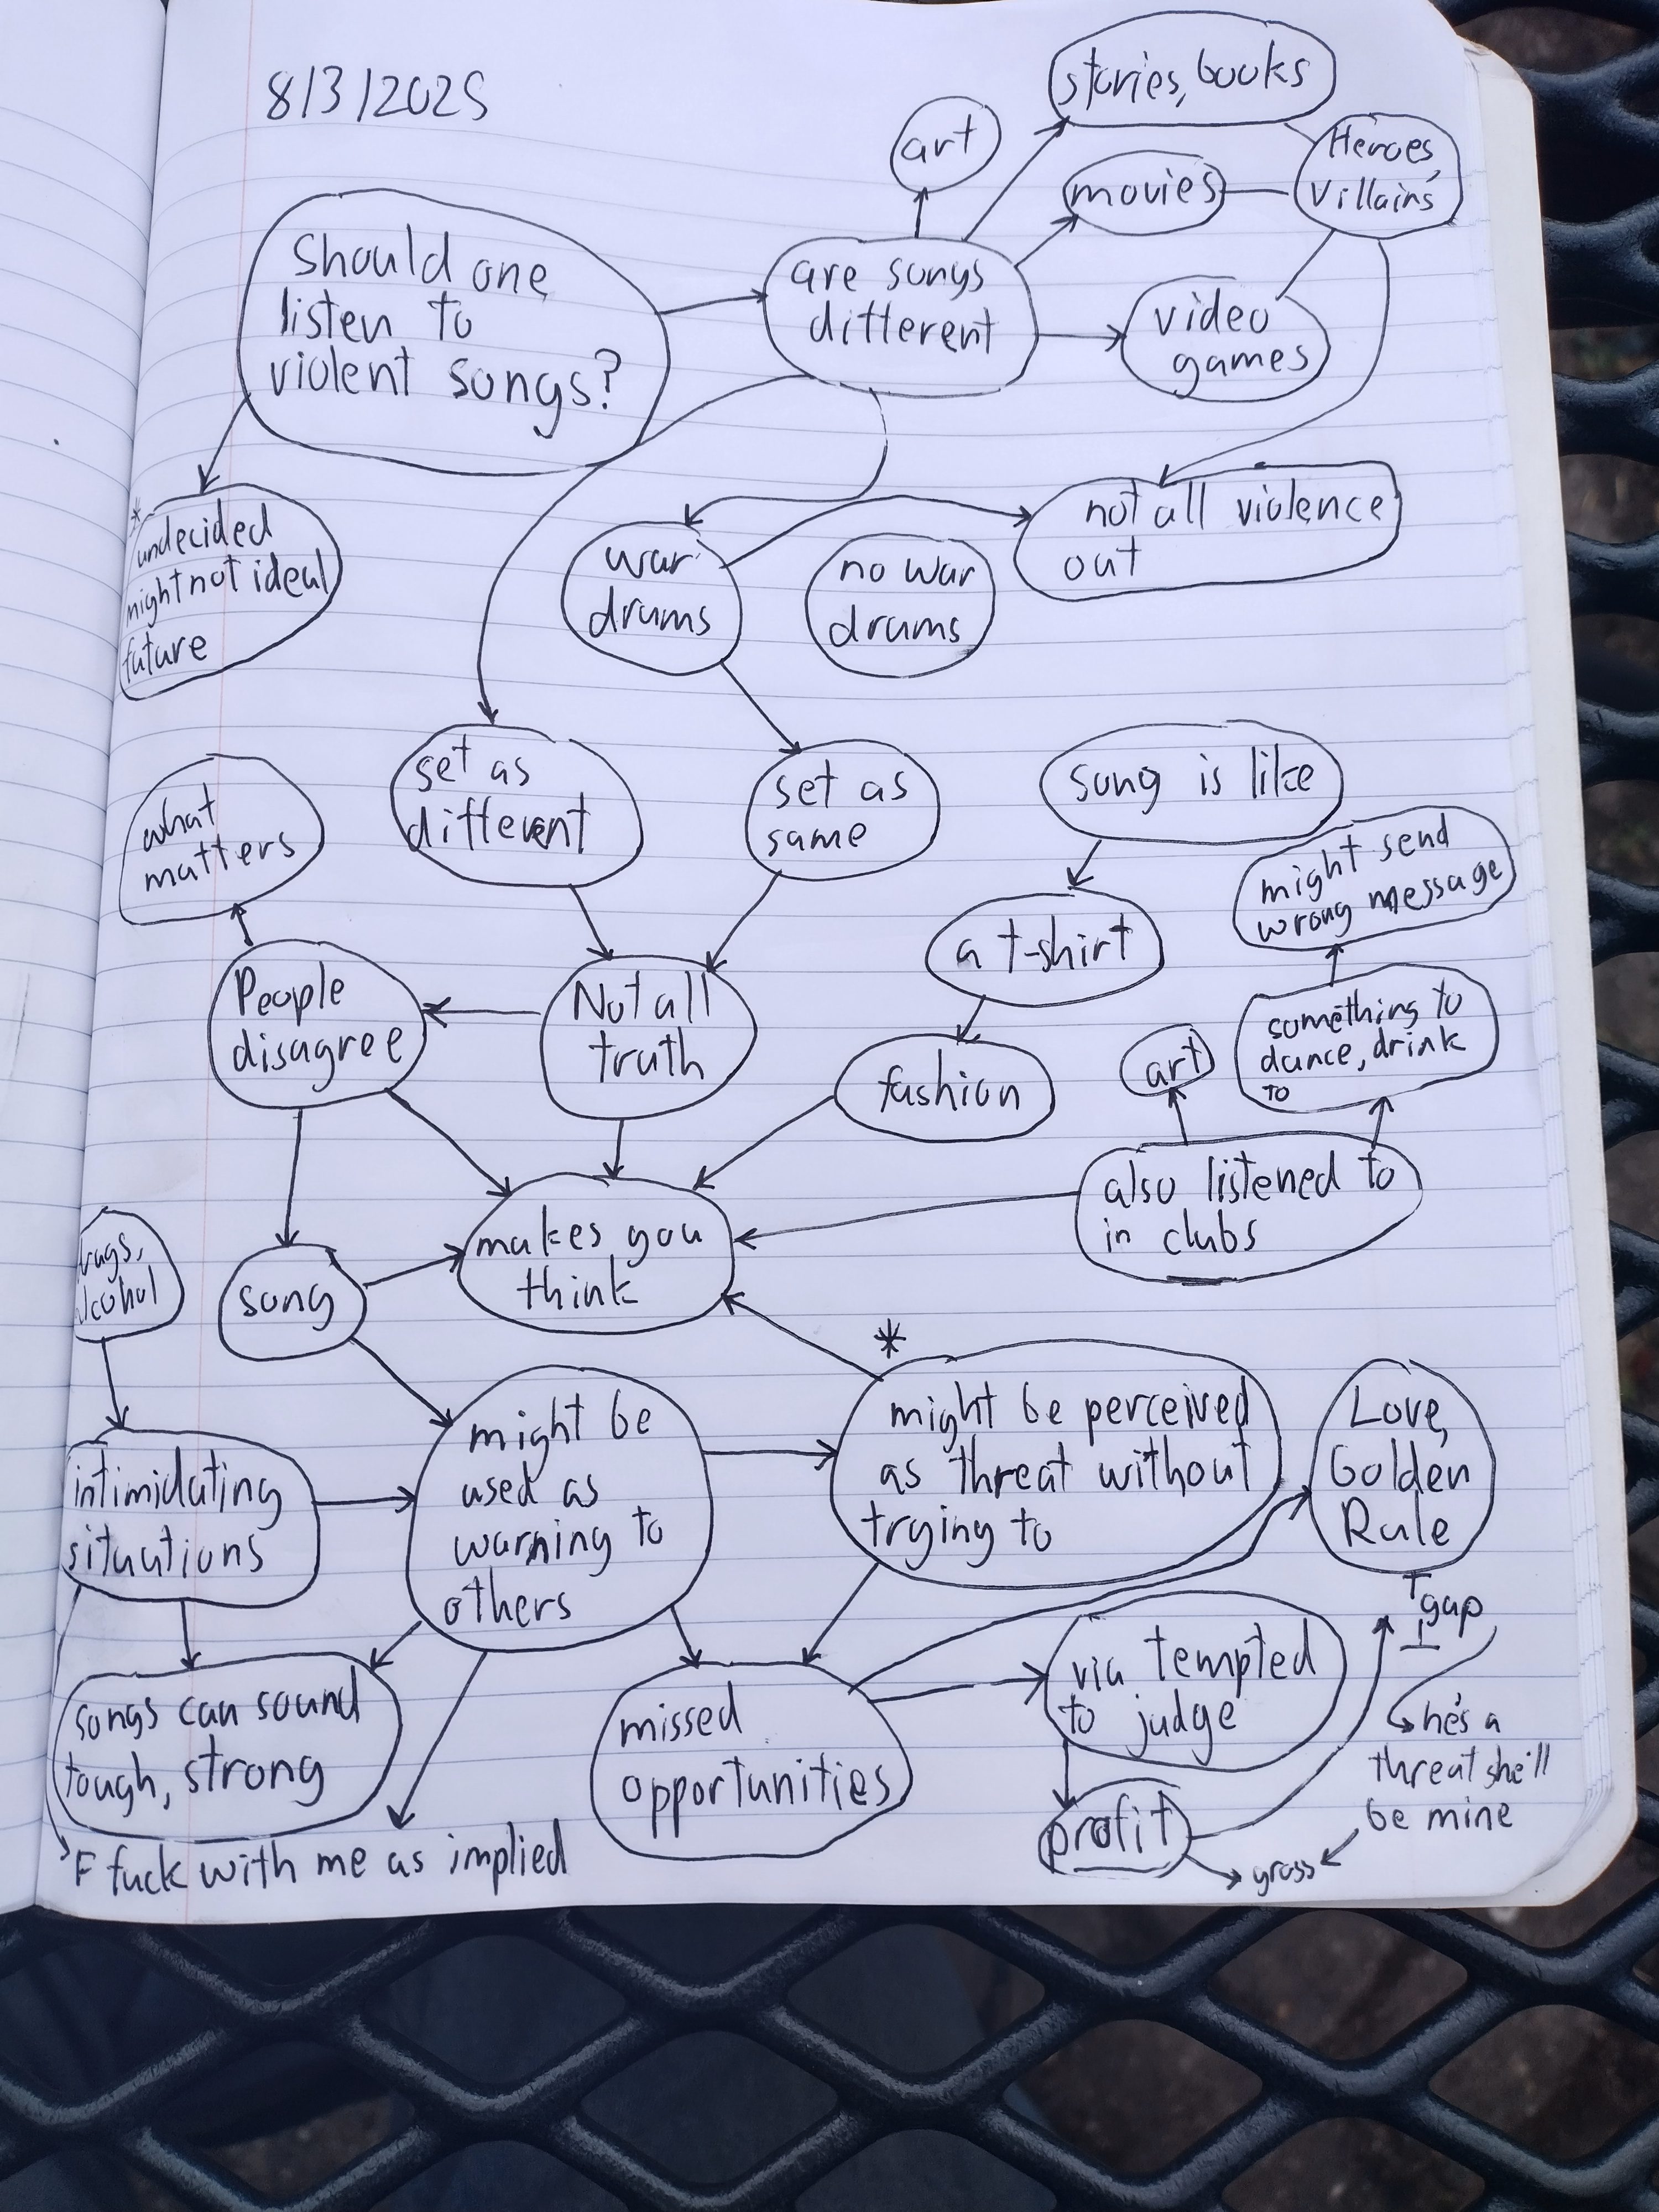 8/3/2025
stories, books
art
Heroes,
Villains
movies
Should one
listen to
violent songs?
are songs
different
video
games
*
undecided
might not ideal
future
war
drums
no war
drums
not all violence
out
what
matters
set as
different
set as
same
song is like
might send
wrong message
a t-shirt
People
disagree
Not all
truth
fashion
art
something to
dance, drink
to
also listened to
in clubs
makes you
think
song
alcohol
*
might be
used as
warning to
others
might be perceived
as threat without
trying to
Love,
Golden
Rule
intimidating
situations
gap
songs can sound
tough, strong
missed
opportunities
via tempted
to judge
he's a
threat she'll
be mine
profit
gross
F fuck with me as implied